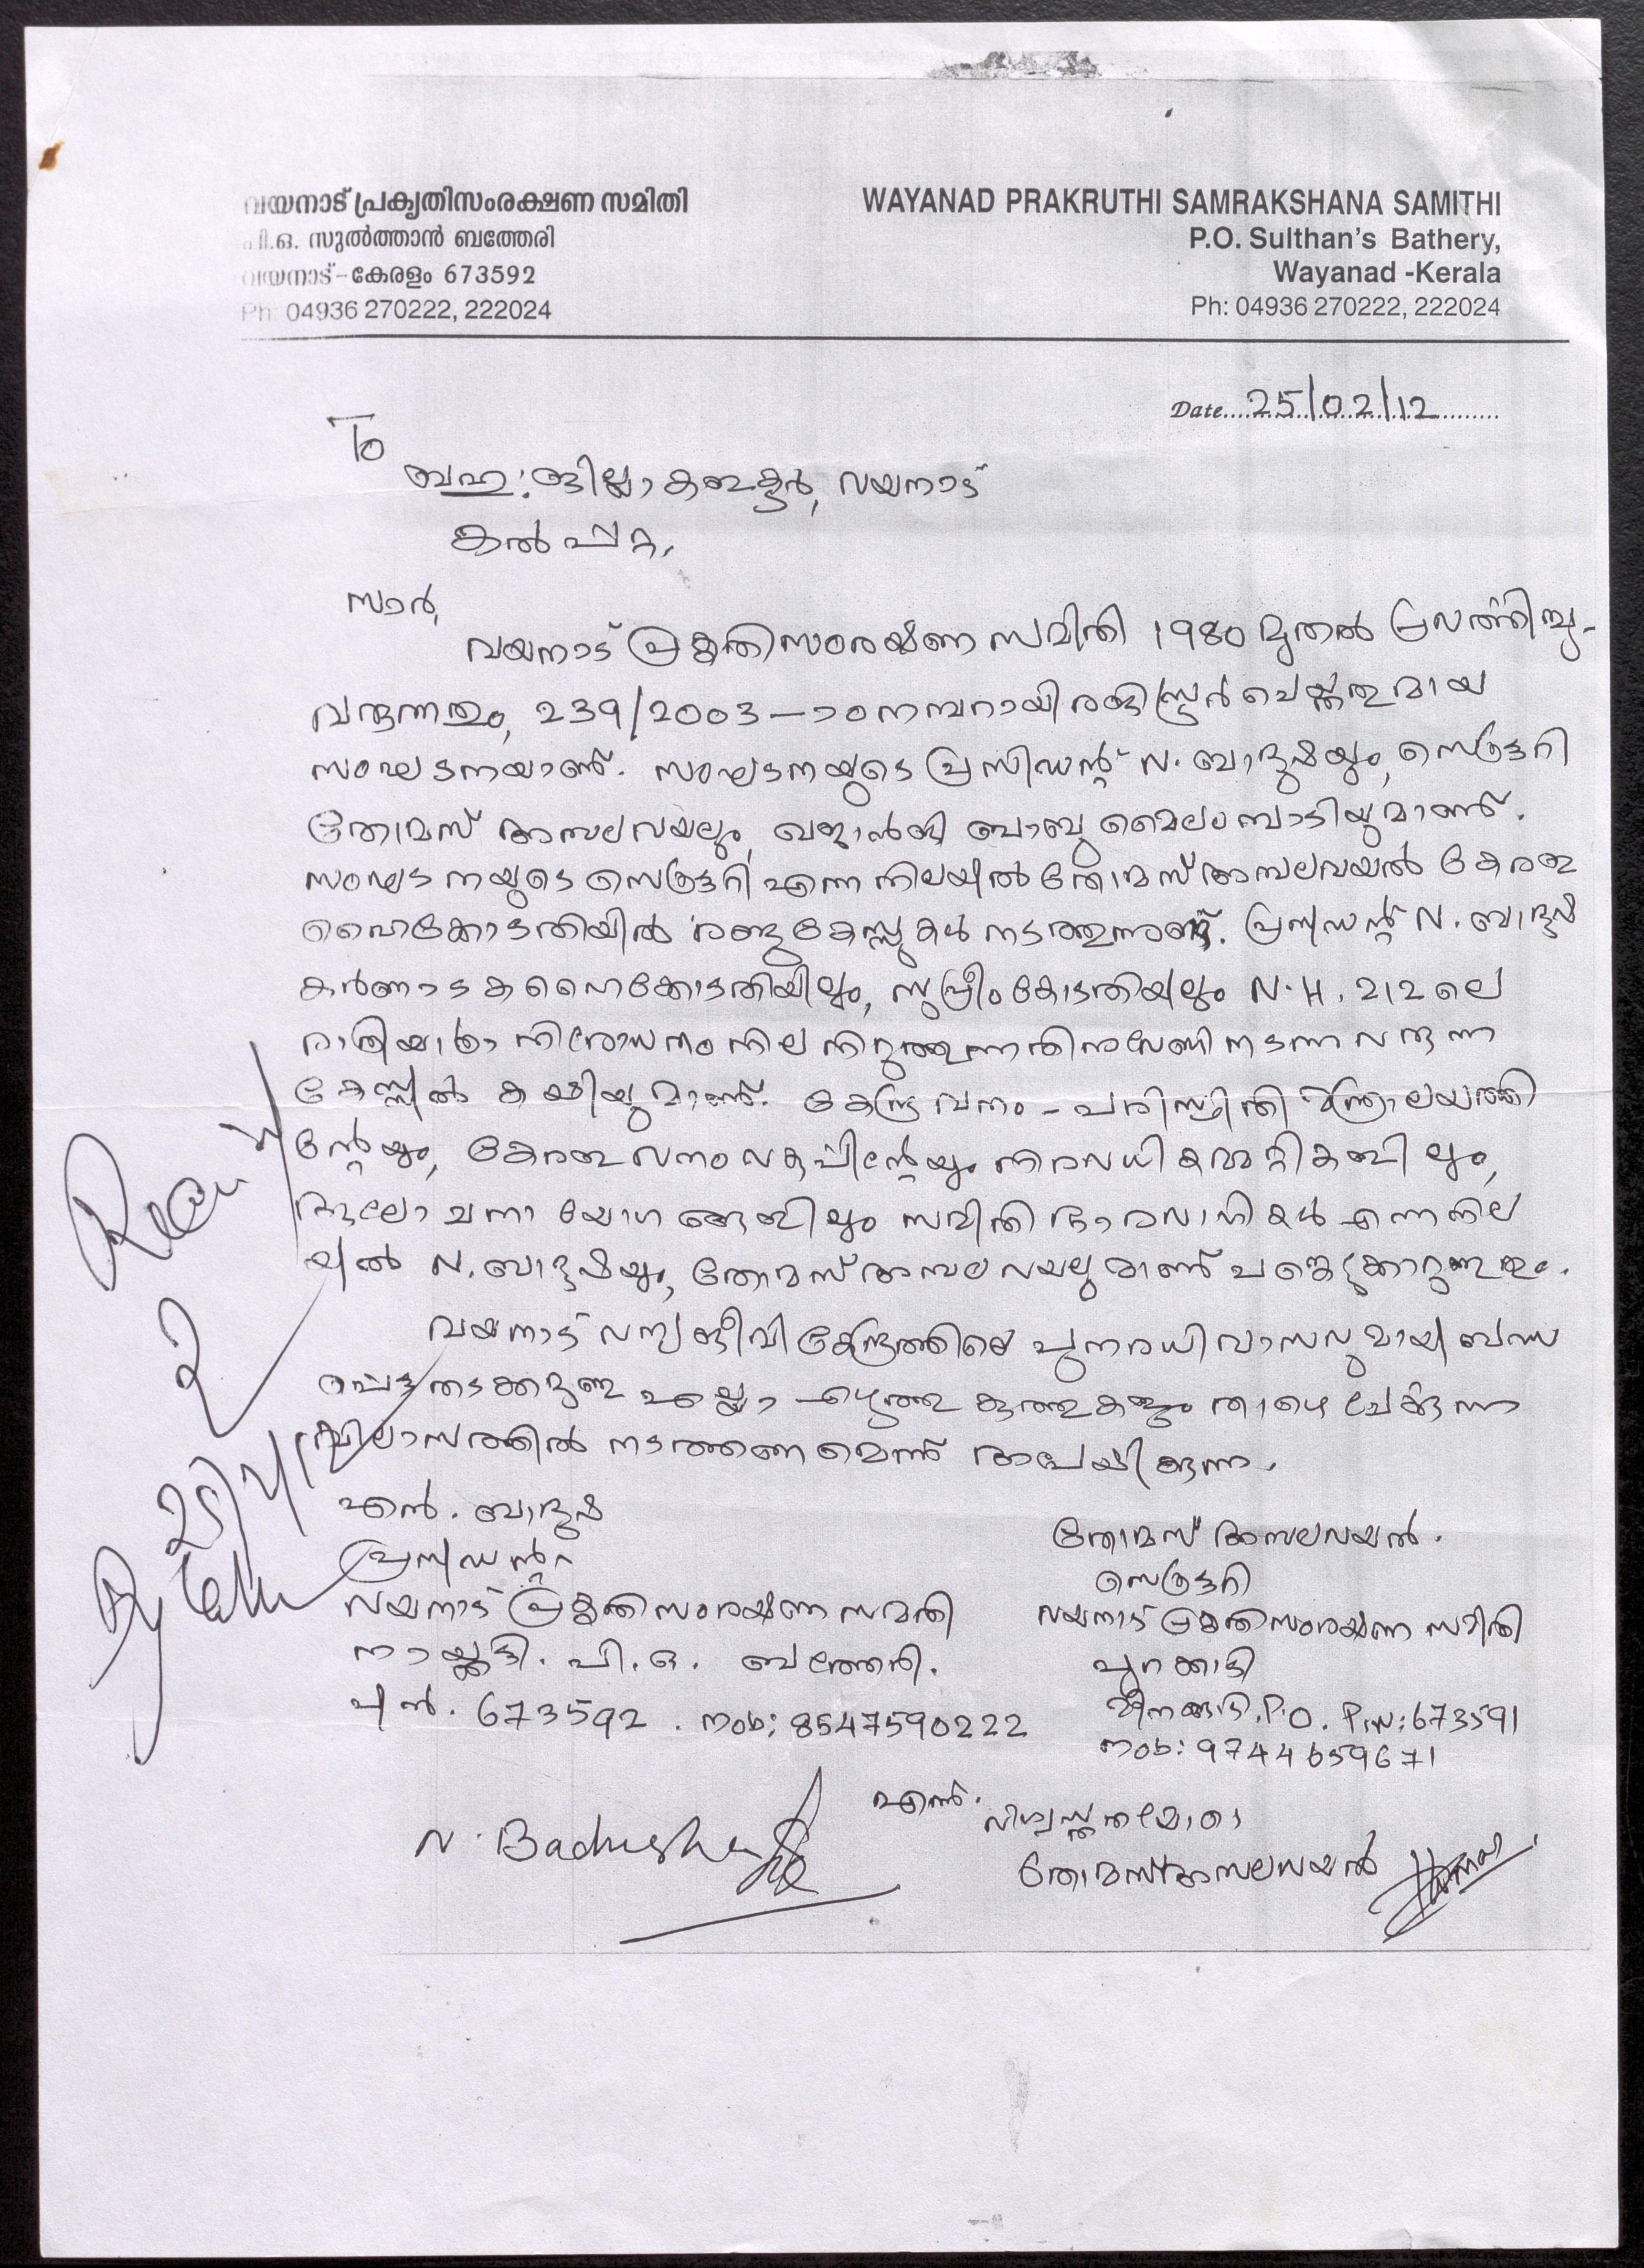 വയനാട് പ്രകൃതിസംരക്ഷണ സമിതി
പി.ഒ. സുൽത്താൻ ബത്തേരി
വയനാട്-കേരളം 673592
Ph: 04936 270222, 222024
WAYANAD PRAKRUTHI SAMRAKSHANA SAMITHI
P.O. Sulthan's Bathery,
Wayanad -Kerala
Ph: 04936 270222, 222024
Date....25/02/12
To
ബഹു: ജില്ലാ കളക്ടർ, വയനാട്
കൽപ്പറ്റ,
സാർ,
വയനാട് പ്രകൃതിസംരക്ഷണ സമിതി 1980 മുതൽ പ്രവർത്തിച്ചു-
വരുന്നതും, 239/2003-ാം നമ്പറായി രജിസ്റ്റർ ചെയ്തതുമായ
സംഘടനയാണ്. സംഘടനയുടെ പ്രസിഡന്റ് N. ബാദുഷയും, സെക്രട്ടറി
തോമസ് അമ്പലവയലും, ഖജാൻജി ബാബു മൈലമ്പാടിയുമാണ്.
സംഘടനയുടെ സെക്രട്ടറി എന്ന നിലയിൽ തോമസ് അമ്പലവയൽ കേരള
ഹൈക്കോടതിയിൽ രണ്ടു കേസ്സുകൾ നടത്തുന്നുണ്ട്. പ്രസിഡന്റ് N. ബാദുഷ
കർണ്ണാടക ഹൈക്കോടതിയിലും, സുപ്രീം കോടതിയിലും N.H. 212 ലെ
രാത്രിയാത്രാ നിരോധനം നില നിറുത്തുന്നതിനുവേണ്ടി നടന്ന വരുന്ന
കേസ്സിൽ കക്ഷിയുമാണ്. കേന്ദ്ര വനം - പരിസ്ഥിതി മന്ത്രാലയത്തി
ന്റേയും, കേരള വനം വകുപ്പിന്റേയും നിരവധി കമ്മറ്റികളിലും,
ആലോചനാ യോഗങ്ങളിലും സമിതി ഭാരവാഹികൾ എന്നനില
യിൽ N. ബാദുഷയും, തോമസ് അമ്പലവയലുമാണ് പങ്കെടുക്കാറുള്ളതും.
വയനാട് വന്യജീവി കേന്ദ്രത്തിലെ പുനരധിവാസവുമായി ബന്ധ
എല്ലാ എഴുത്തുകുത്തുകളും താഴെ ചേർക്കുന്ന
വിലാസത്തിൽ നടത്തണമെന്ന് അപേക്ഷിക്കുന്നു.
എൻ. ബാദുഷ
പ്രസിഡന്റ്
വയനാട് പ്രകൃതി സംരക്ഷണ സമിതി
നായ്ക്കട്ടി. പി.ഒ. ബത്തേരി.
പിൻ. 673592. mob: 8547590222
തോമസ് അമ്പലവയൽ.
സെക്രട്ടറി
വയനാട് പ്രകൃതിസംരക്ഷണ സമിതി
പുറക്കാടി
മീനങ്ങാടി. P.O. Pin: 673591
mob: 9744659671
എന്ന്.
വിശ്വസ്തതയോടെ
തോമസ് അമ്പലവയൽ
N. Badusha